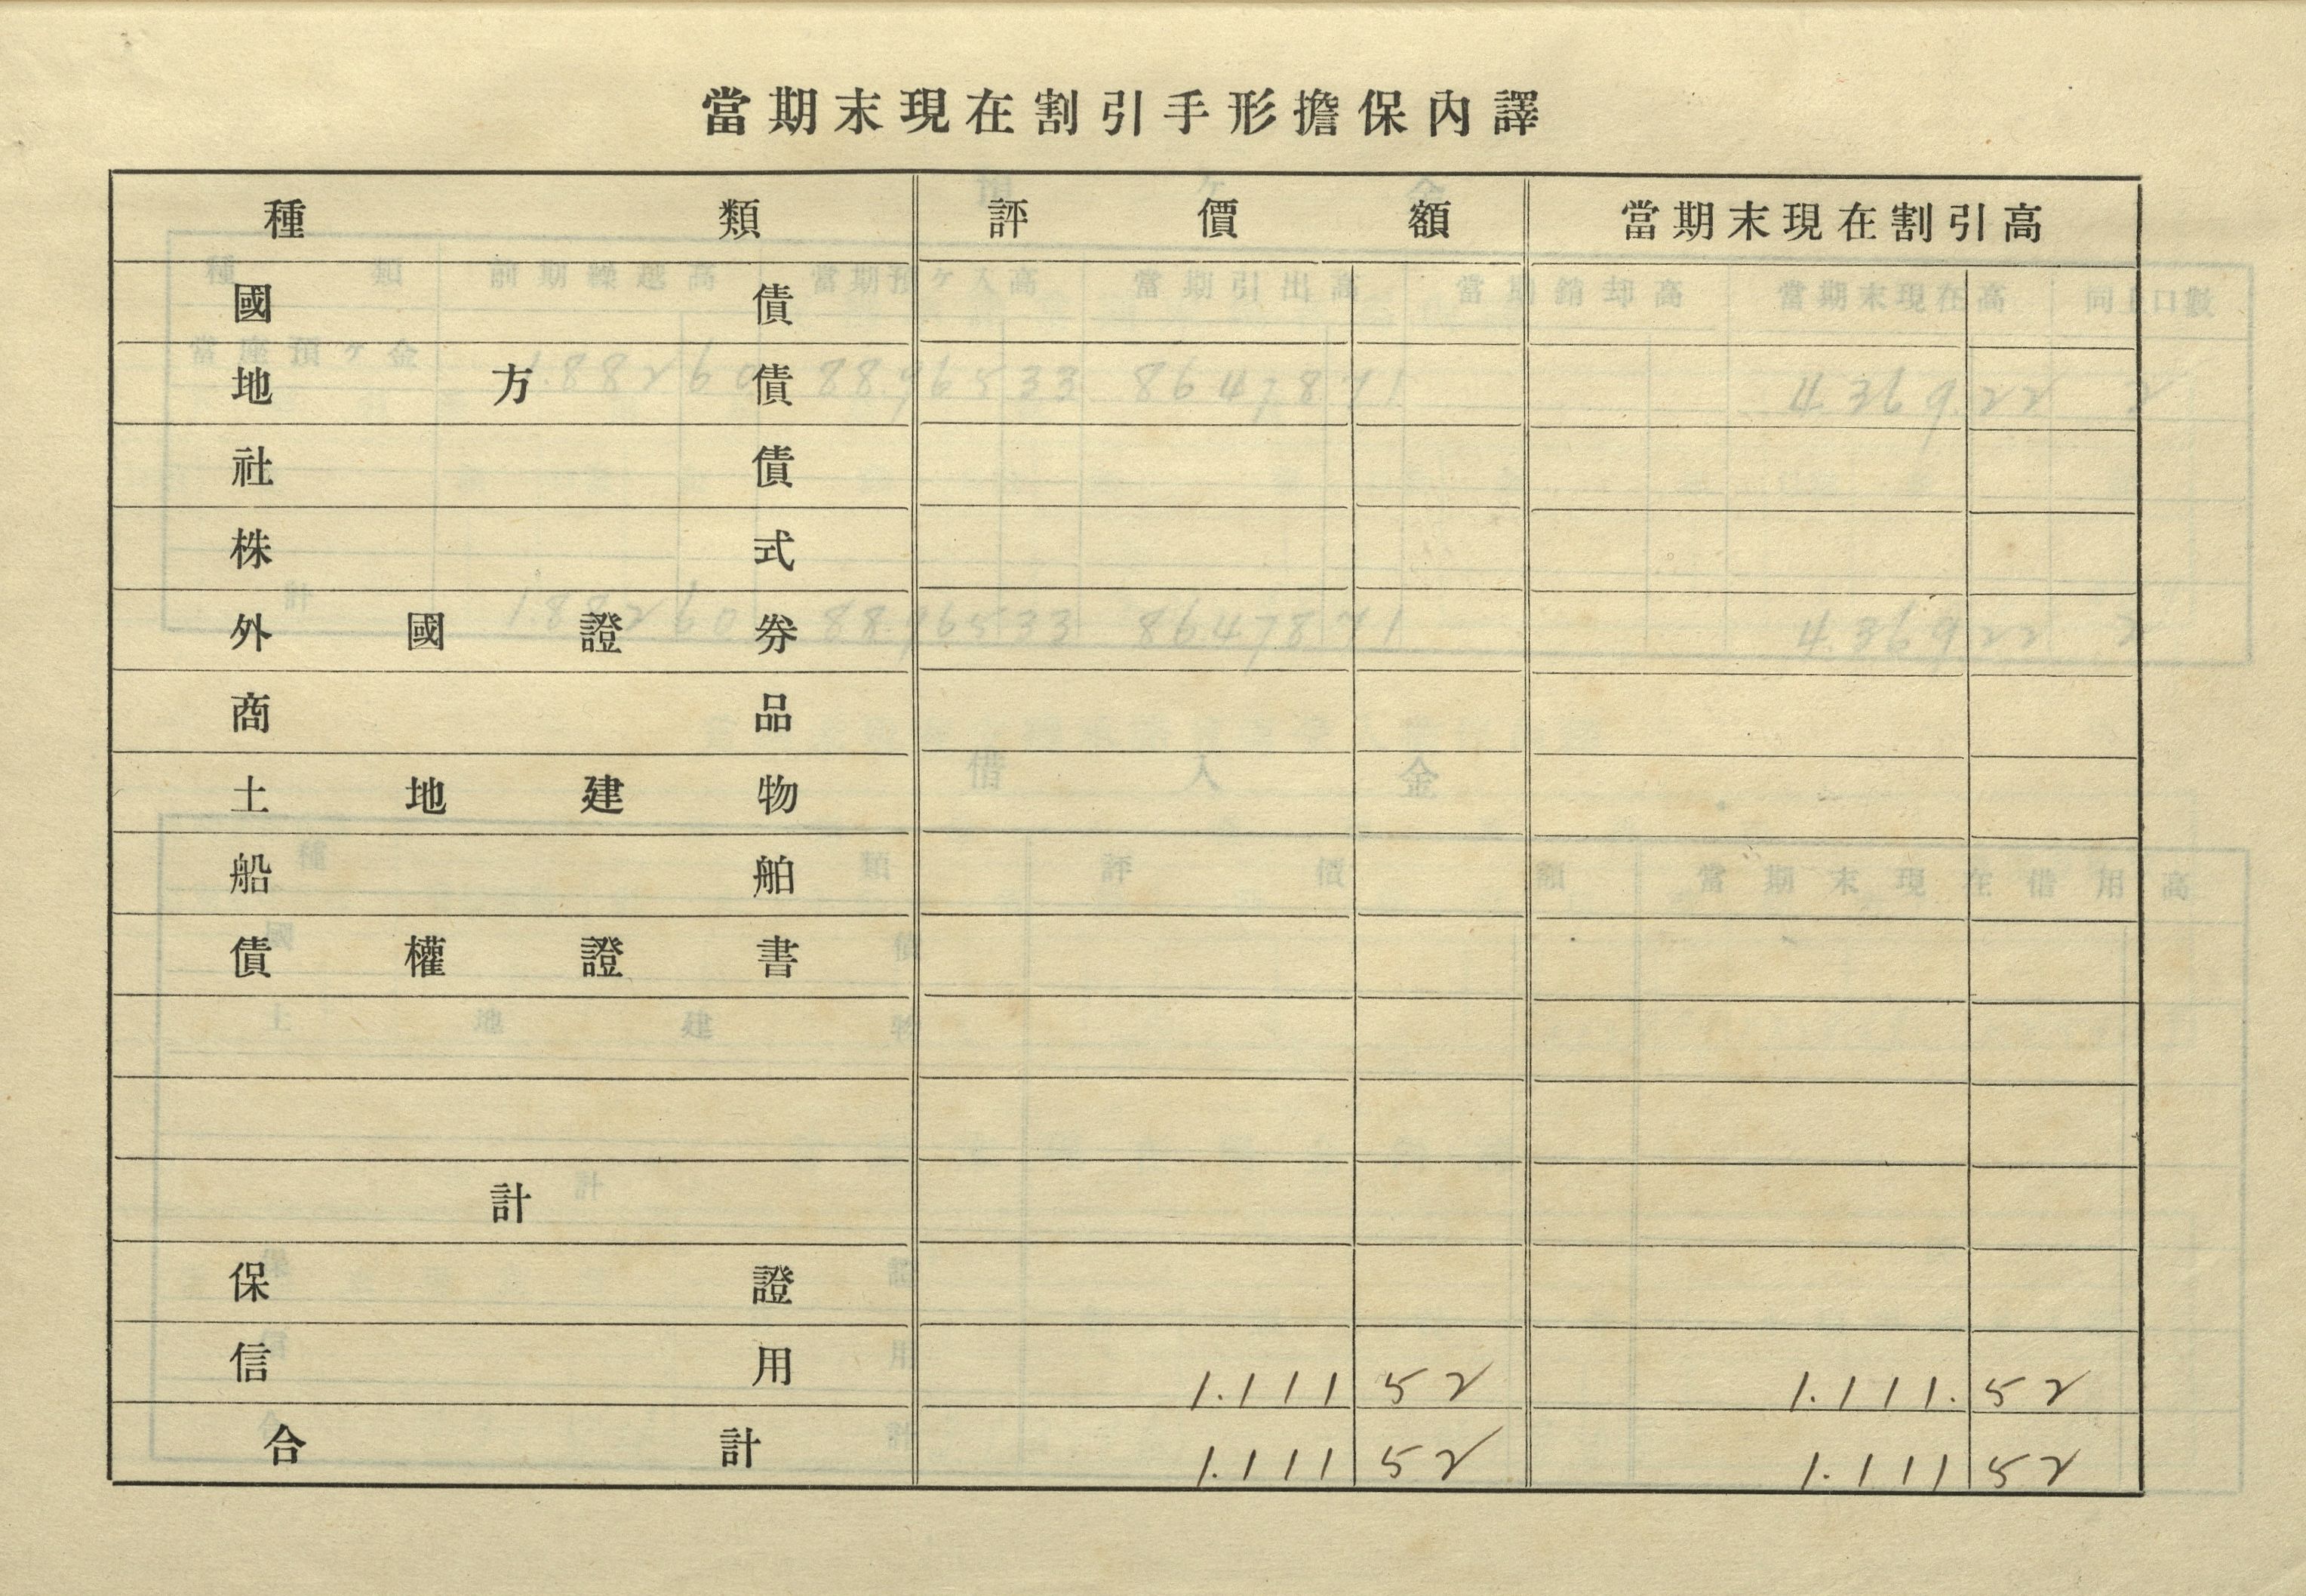 當期末現在割引手形擔保內譯
種類 評價額 當期末現在割引高
國債
地方債
社債
株式
外國證券
商品
土地建物
船舶
債權證書
計
保證
信用 1.111 52 1.111. 52
合計 1.111 52 1.111 52